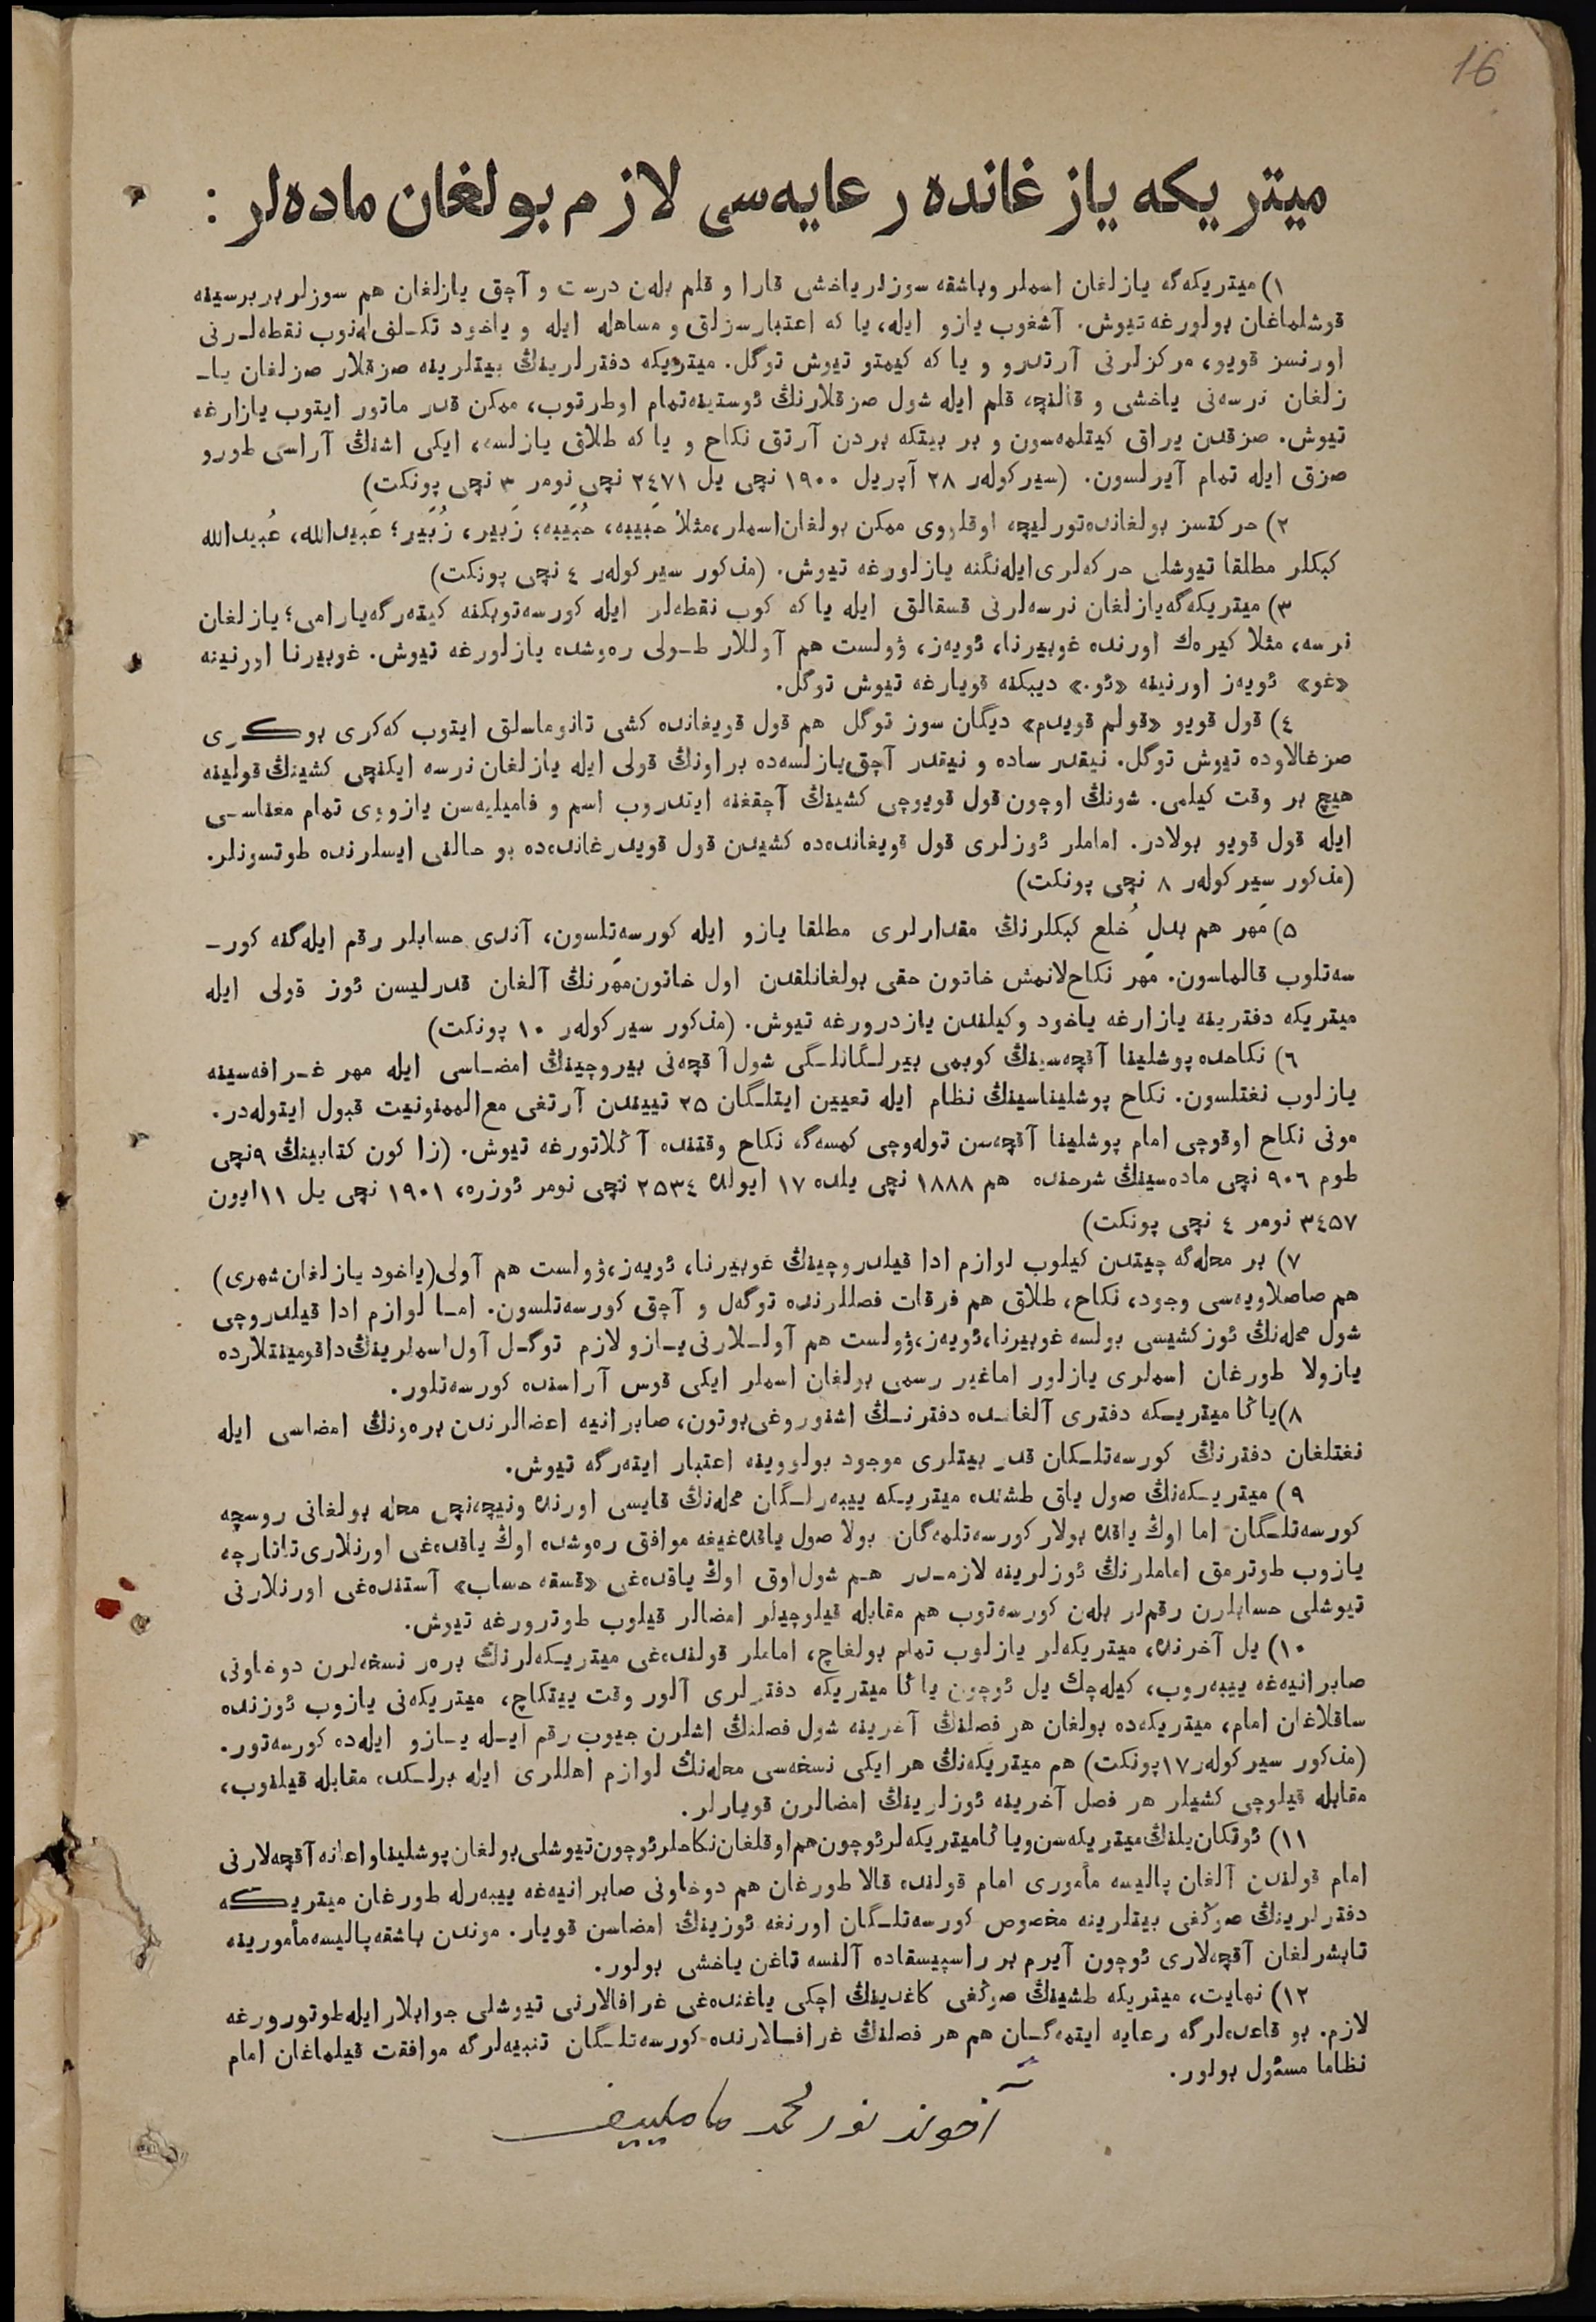 16
ميتريكه يازغانده رعايه‌سى لازم بولغان ماده‌لر :
١) ميتريكه‌گه يازلغان اسملر وباشقه سوزلر ياخشى قارا و قلم بله‌ن درست و آچق يازلغان هم سوزلر بربرسينه
قوشلماغان بولورغه تيوش. آشغوب يازو ايله، يا كه اعتبارسزلق و مساهله ايله و ياخود تكلفله‌نوب نقطه‌لرنى
اورنسز قويو، مركزلرنى آرتدرو و يا كه كيمتو تيوش توگل. ميتريكه دفترلرينڭ بيتلرينه صزقلار صزلغان يا-
زلغان نرسه‌نى ياخشى و قالنچه قلم ايله شول صزقلارنڭ ئوستينه‌تمام اوطرتوب، ممكن قدر ماتور ايتوب يازارغه
تيوش. صزقدن يراق كيتلمه‌سون و بر بيتكه بردن آرتق نكاح و يا كه طلاق يازلسه، ايكى اشنڭ آراسى طورو
صزق ايله تمام آيرلسون. (سيركولەر ٢٨ آپريل ١٩٠٠ نچى يل ٢٤٧١ نچى نومر ٣ نچى پونكت)
٢) حركتسز بولغانده‌تورليچه اوقلووى ممكن بولغان‌اسملر،مثلا حَبيبه، حُبَيبه؛ زَبير، زُبَير؛ عَبيدالله، عُبيدالله
كبكلر مطلقا تيوشلى حركه‌لرى‌ايله‌نگنه يازلورغه تيوش. (مذكور سيركولەر ٤ نچى پونكت)
٣) ميتريكه‌گه‌يازلغان نرسه‌لرنى قسقالق ايله يا كه كوب نقطه‌لر ايله كورسه‌توبكنه كيته‌رگه‌يارامى؛ يازلغان
نرسه، مثلا كيره‌ك اورنده غوبيرنا، ئويه‌ز، ۋولست هم آوللار طولى ره‌وشده يازلورغه تيوش. غوبيرنا اورنينه
«غو» ئويه‌ز اورنينه «ئو.» ديبكنه قويارغه تيوش توگل.
٤) قول قويو «قولم قويدم» ديگان سوز توگل هم قول قويغانده كشى تانوماسلق ايتوب كه‌كرى بوكرى
صزغالاوده تيوش توگل. نيقدر ساده و نيقدر آچق‌يازلسه‌ده براونڭ قولى ايله يازلغان نرسه ايكنچى كشينڭ قولينه
هيچ بر وقت كيلمى. شونڭ اوچون قول قويوچى كشينڭ آچقغنه ايتدروب اسم و فاميليه‌سن يازووى تمام معناسى
ايله قول قويو بولادر. اماملر ئوزلرى قول قويغانده‌ده كشيدن قول قويدرغانده‌ده بو حالنى ايسلرنده طوتسونلر.
(مذكور سيركولەر ٨ نچى پونكت)
٥) مَهر هم بدلِ خُلع كبكلرنڭ مقدارلرى مطلقا يازو ايله كورسه‌تلسون، آندى حسابلر رقم ايله‌گنه كور-
سه‌تلوب قالماسون. مَهر نكاح‌لانمش خاتون حقى بولغانلقدن اول خاتون‌مهرنڭ آلغان قدرليسن ئوز قولى ايله
ميتريكه دفترينه يازارغه ياخود وكيلندن يازدرورغه تيوش. (مذكور سيركولەر ١٠ پونكت)
٦) نكاحده پوشلينا آقچه‌سينڭ كوبمى بيرلگانلگى شول آقچه‌نى بيروچينڭ امضاسى ايله مهر غرافه‌سينه
يازلوب نغتلسون. نكاح پوشليناسينڭ نظام ايله تعيين ايتلگان ٢٥ تييندن آرتغى مع‌الممنونيت قبول ايتوله‌در.
مونى نكاح اوقوچى امام پوشلينا آقچه‌سن توله‌وچى كمسه‌گه نكاح وقتنده آڭلاتورغه تيوش. (زاكون كتابينڭ ٩نچى
طوم ٩٠٦ نچى ماده‌سينڭ شرحنده هم ١٨٨٨ نچى يلده ١٧ ايولده ٢٥٣٤ نچى نومر ئوزره، ١٩٠١ نچى يل ١١ايون
٣٤٥٧ نومر ٤ نچى پونكت)
٧) بر محله‌گه چيتدن كيلوب لوازم ادا قيلدروچينڭ غوبيرنا، ئويه‌ز،ۋولست هم آولى(ياخود يازلغان‌شهرى)
هم صاصلاويه‌سى وجود، نكاح، طلاق هم فرقات فصللرنده توگه‌ل و آچق كورسه‌تلسون. اما لوازم ادا قيلدروچى
شول محله‌نڭ ئوزكشيسى بولسه غوبيرنا،ئويه‌ز،ۋولست هم آوللارنى‌يازو لازم توگل آول‌اسملرينڭ‌داقومينتلارده
يازولا طورغان اسملرى يازلور اماغير رسمى بولغان اسملر ايكى قوس آراسنده كورسه‌تلور.
٨)ياڭا ميتريكه دفترى آلغانده دفترنڭ اشنوروغى‌بوتون، صابرانيه اعضالرندن بره‌ونڭ امضاسى ايله
نغتلغان دفترنڭ كورسه‌تلكان قدر بيتلرى موجود بولووينه اعتبار ايته‌رگه تيوش.
٩) ميتريكه‌نڭ صول ياق طشنده ميتريكه ييبه‌رلگان محله‌نڭ قايسى اورنده ونيچه‌نچى محله بولغانى روسچه
كورسه‌تلگان اما اوڭ ياقده بولار كورسه‌تلمه‌گان بولا صول ياقده‌غيغه موافق ره‌وشده اوڭ ياقده‌غى اورنلارى‌تاتارچه
يازوب طوترمق اماملرنڭ ئوزلرينه لازمدر هم شول‌اوق اوڭ ياقده‌غى «قسقه حساب» آستنده‌غى اورنلارنى
تيوشلى حسابلرن رقم‌لر بله‌ن كورسه‌توب هم مقابله قيلوچيلر امضالر قيلوب طوترورغه تيوش.
١٠) يل آخرنده، ميتريكه‌لر يازلوب تمام بولغاچ، اماملر قولنده‌غى ميتريكه‌لرنڭ برەر نسخه‌لرن دوخاونى
صابرانيه‌غه ييبه‌روب، كيله‌چك يل ئوچون ياڭا ميتريكه دفترلرى آلور وقت ييتكاچ، ميتريكه‌نى يازوب ئوزنده
ساقلاغان امام، ميتريكه‌ده بولغان هر فصلنڭ آخرينه شول فصلنڭ اشلرن جيوب رقم ايله يازو ايله‌ده كورسه‌تور.
(مذكور سيركولەر١٧پونكت) هم ميتريكه‌نڭ هر ايكى نسخه‌سى محله‌نڭ لوازم اهللرى ايله برلكده مقابله قيلنوب،
مقابله قيلوچى كشيلر هر فصل آخرينه ئوزلرينڭ امضالرن قويارلر.
١١) ئوتكان‌يلنڭ‌ميتريكه‌سن‌وياڭاميتريكه‌لرئوچون‌هم‌اوقلغان‌نكاحلرئوچون‌تيوشلى‌بولغان‌پوشليناواعانه‌آقچه‌لارنى
امام قولندن آلغان پاليسه مأمورى امام قولنده قالا طورغان هم دوخاونى صابرانيه‌غه ييبه‌رله طورغان ميتريكه
دفترلرينڭ صوڭغى بيتلرينه مخصوص كورسه‌تلگان اورنغه ئوزينڭ امضاسن قويار. موندن باشقه‌پاليسه‌مأمورينه
تابشرلغان آقچه‌لارى ئوچون آيرم بر راسپيسقاده آلنسه تاغن ياخشى بولور.
١٢) نهايت، ميتريكه طشينڭ صوڭغى كاغدينڭ اچكى ياغنده‌غى غرافالارنى تيوشلى جوابلار ايله‌طوتورورغه
لازم. بو قاعده‌لرگه رعايه ايتمه‌گان هم هر فصلنڭ غرافالارنده كورسه‌تلگان تنبيه‌لرگه موافقت قيلماغان امام
نظاما مسئول بولور.
آخوند نورمحمد ماملييف